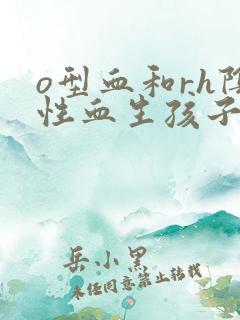 o型血和rh阴
性血生孩子
岳小黑
未经同意禁止转载